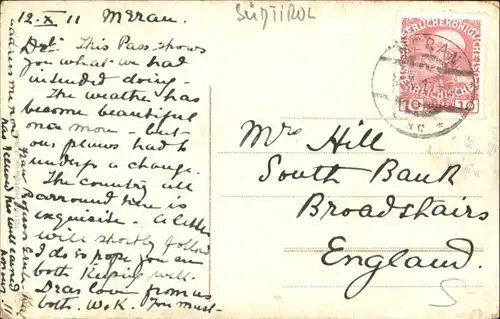 12.X.11 Meran.
SÜDTIROL
Drst. This Pass shows
you what we had
intended doing—
The weather has
become beautiful
once more — but
our plans had to
undergo a change.
The country all
arround here is
exquisite. A letter
will shortly follow
I do so hope you are
both keeping well.
Dras love from us
both. W. & K. You must
address me now
has received his well earned
honour !!!
MERAN
KAISERLICHE KÖNIGLICHE
10 10
Mrs Hill
South Bank
Broadstairs
England.
5